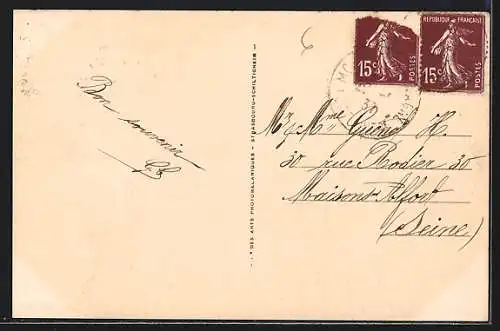 Bon souvenir
RÉPUBLIQUE FRANÇAISE
15c POSTES
15c POSTES
Mr & Mme H.
30 rue Rodier 30
Maisons-Alfort
(Seine)
DES ARTS PHOTOMÉCANIQUES - STRASBOURG-SCHILTIGHEIM